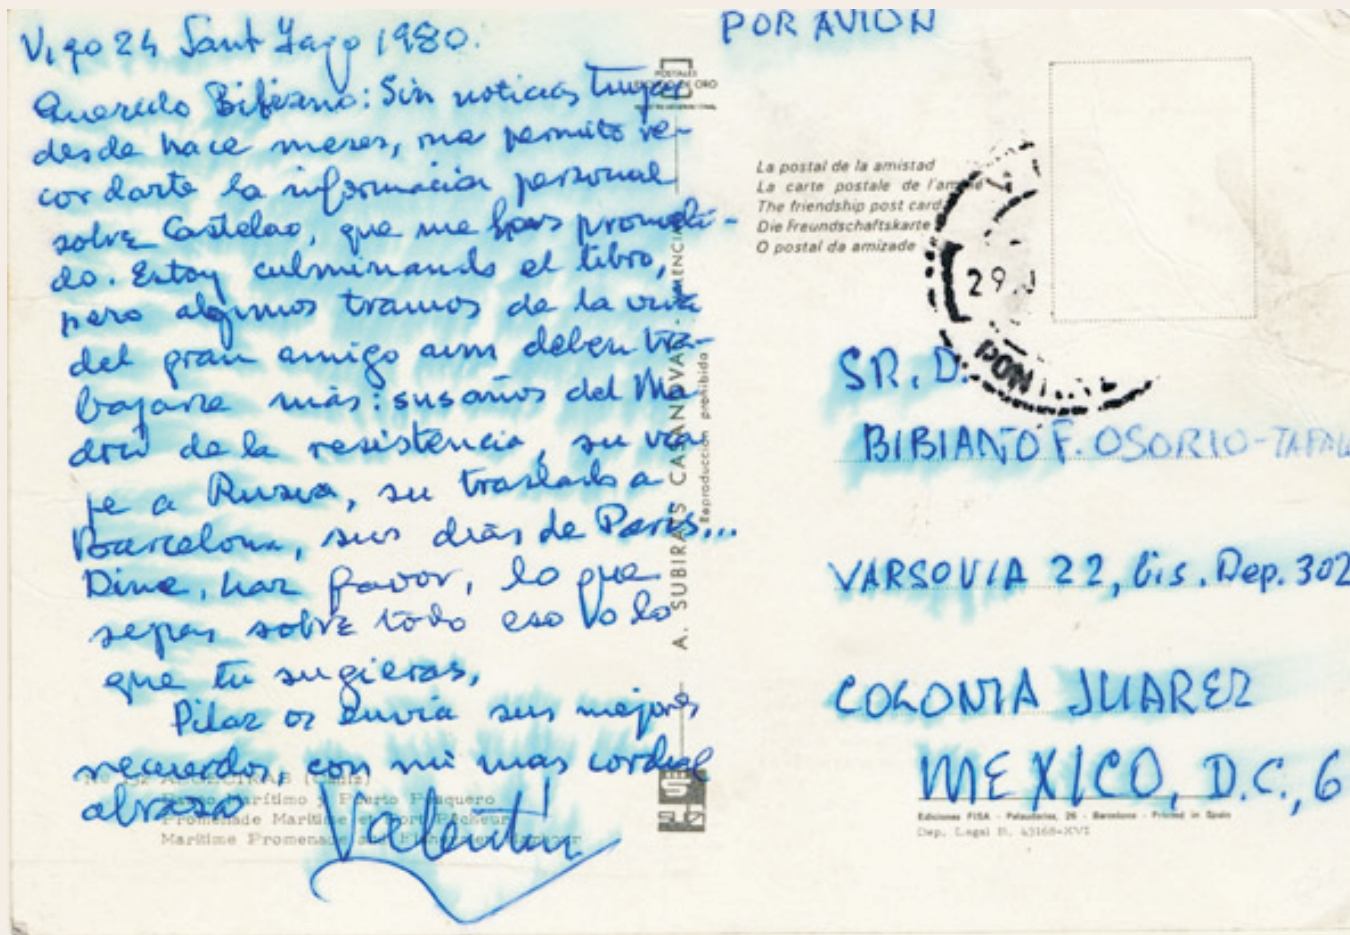 Vigo 24 Sant Yago 1980.
Querido Bibiano: Sin noticias tuyas
desde hace meses, me permito re-
cordarte la información personal
sobre Castelao, que me has prometi-
do. Estoy culminando el libro,
pero algunos tramos de la vida
del gran amigo aun deben tra-
bajarse más: sus años del Ma-
drid de la resistencia, su via-
je a Rusia, su traslado a
Barcelona, sus días de París...
Dime, haz favor, lo que
sepas sobre todo eso o lo
que tu sugieras,
Pilar os envía sus mejores
recuerdos, con mi mas cordial
abrazo
Valentín
ALGECIRAS (Cádiz)
Paseo Marítimo y Puerto Pesquero
Promenade Maritime et Port Pêcheur
Maritime Promenade and
POSTALES
DE ORO
A. SUBIRATS CASANOVA
Reproducción prohibida
POR AVION
La postal de la amistad
La carte postale de l'amitié
The friendship post card
Die Freundschaftskarte
O postal da amizade
29
PON
SR. D.
BIBIANO F. OSORIO-TAFALL
VARSOVIA 22, bis. Dep. 302
COLONIA JUAREZ
MEXICO, D.C., 6
Ediciones FISA - Palaudarias, 26 - Barcelona - Printed in Spain
Dep. Legal B. 43168-XVI